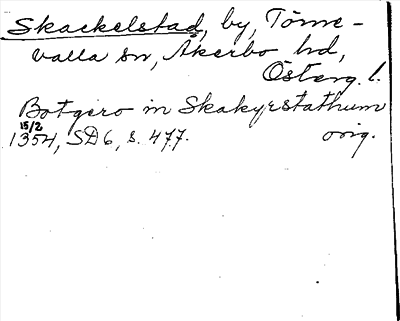 Skackelstad, by, Törne-
valla sn, Åkerbo hd,
Österg. l.
Botgero in Skakyrstathum
15/2
1354, SD6, s. 477. orig.